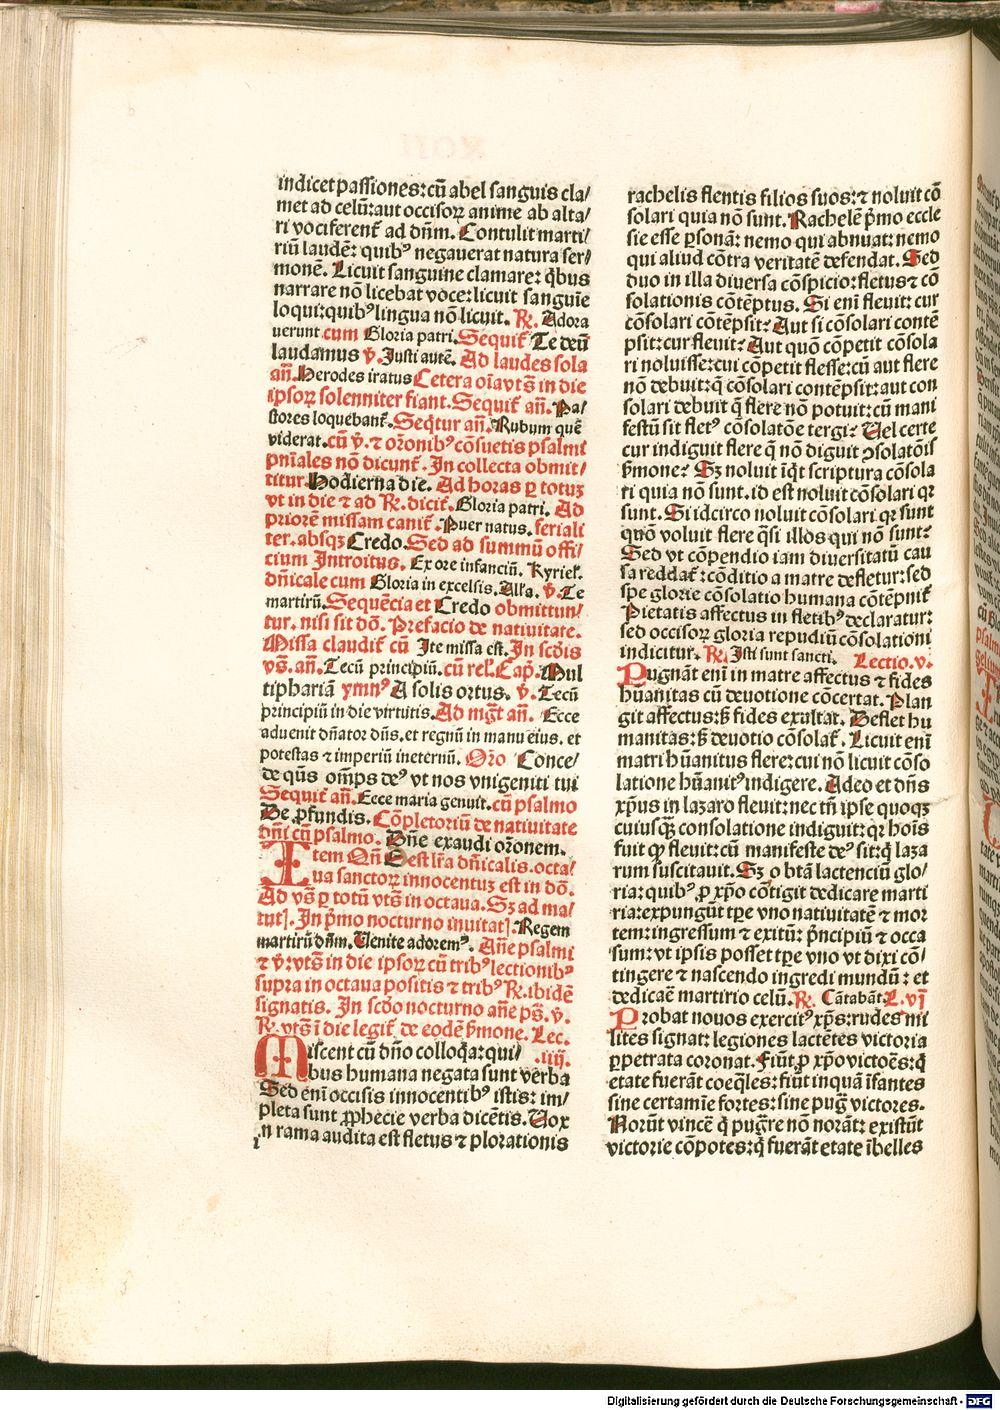 indicet passiones: cū abel sanguis cla/
met ad celū: aut occisoꝝ anime ab alta/
ri vociferent᷑ ad dn̄m. Contulit marti/
riū laudē: quibꝰ negauerat natura ser/
monē. Licuit sanguine clamare: q̄bus
narrare nō licebat voce: licuit sanguīe
loqui: quibꝰ lingua nō licuit. ℟. Adora
uerunt cum Gloria patri. Sequit᷑ Te deū
laudamus ꝟ. Justi autē. Ad laudes sola
añ. Herodes iratus Cetera oīa vts̄ in die
ipsoꝝ solenniter fiant. Sequit᷑ añ. Pa/
stores loquebant᷑. Seq̄tur añ. Rubum quē
viderat. cū ꝟ. ⁊ orōnibꝰ cōsuetis psalmi
pn̄iales nō dicunt᷑. In collecta obmit/
titur Hodierna die. Ad horas ꝑ totuꝫ
vt in die ⁊ ad ℟. dicit᷑. Gloria patri. Ad
priorē missam canit᷑. Puer natus. feriali
ter. absqꝫ Credo. Sed ad summū offi/
cium Introitus. Ex ore infanciū. Kyriel᷑.
dn̄icale cum Gloria in excelsis. Alľa. ꝟ. Te
martirū. Sequēcia et Credo obmittun/
tur. nisi sit dō. Prefacio de natiuitate.
Missa claudit᷑ cū Ite missa est. In scd̄is
vs̄. añ. Tecū principiū. cū rel᷑. Cap̄. Mul
tiphariā ymnꝰ A solis ortus. ꝟ. Tecū
principiū in die virtutis. Ad mḡt añ. Ecce
adueniт dn̄ator dn̄s. et regnū in manu eius. et
potestas ⁊ imperiū in eternū. Oro Conce/
de qs̄ om̄ps deꝰ vt nos vnigeniti tui
Sequit᷑ añ. Ecce maria genuit. cū psalmo
De ꝓfundis. Cōpletoriū de natiuitate
dn̄i cū psalmo. Dn̄e exaudi orōnem.
Item Qn̄ D est lr̄a dn̄icalis. octa/
ua sanctoꝝ innocentuꝫ est in dō.
Ad vs̄ ꝑ totū vts̄ in octaua. Sꝫ ad ma/
tut]. In p̄mo nocturno inuitat]. Regem
martirū dn̄m. Uenite adoremꝰ. Añe psalmi
⁊ ꝟ: vts̄ in die ipsoꝝ cū tribꝰ lectionibꝰ
supra in octaua positis ⁊ tribꝰ ℟. ibidē
signatis. In scd̄o nocturno añe ps̄. ꝟ.
℟. vts̄ ī die legit᷑ de eodē s̄mone. Lec.
Miscent cū dn̄o colloq̄a: qui/ .iiij.
bus humana negata sunt verba
Sed enī occisis innocentibꝰ istis: im/
pleta sunt ꝓphecie verba dicētis. Uox
in rama audita est fletus ⁊ plorationis
rachelis flentis filios suos: ⁊ noluit cō
solari quia nō sunt. Rachelē p̄mo eccle
sie esse ꝑsonā: nemo qui abnuat: nemo
qui aliud cōtra veritatē defendat. Sed
duo in illa diuersa cōspicio: fletus ⁊ cō
solationis cōtēptus. Si enī fleuit: cur
cōsolari cōtēpsit: Aut si cōsolari contē
psit: cur fleuit: Aut quō cōpetit cōsola
ri noluisse: cui cōpetit flesse: cū aut flere
nō debuit: q̄ cōsolari contēpsit: aut con
solari debuit q̄ flere nō potuit: cū mani
festū sit fletꝰ cōsolatōe tergi: Uel certe
cur indiguit flere q̄ nō diguit ꝯsolatōis
s̄mone: Sꝫ noluit īq̄t scriptura cōsola
ri quia nō sunt. id est noluit cōsolari qꝛ
sunt. Si idcirco noluit cōsolari qꝛ sunt
quō voluit flere q̄si illos qui nō sunt:
Sed vt cōpendio iam diuersitatū cau
sa reddat᷑: cōditio a matre defletur: sed
spe glorie cōsolatio humana cōtēpnit᷑
Pietatis affectus in fletibꝰ declaratur:
sed occisoꝝ gloria repudiū cōsolationi
indicitur. ℟. Isti sunt sancti. Lectio. v.
Pugnāt enī in matre affectus ⁊ fides
hūanitas cū deuotione cōcertat. Plan
git affectus: s̄ fides exultat. Deflet hu
manitas: s̄ deuotio cōsolat᷑. Licuit enī
matri hūanitus flere: cui nō licuit cōso
latione hūanitꝰ indigere. Adeo et dn̄s
xp̄us in lazaro fleuit: nec tn̄ ipse quoqꝫ
cuiusq̄ꝫ consolatione indiguit: qꝛ hoīs
fuit ꝙ fleuit: cū manifeste deꝰ sit: q̄ laza
rum suscitauit. Sꝫ o btā lactenciū glo/
ria: quibꝰ ꝓ xp̄o cōtigit dedicare marti
ria: expungūt tp̄e vno natiuitatē ⁊ mor
tem: ingressum ⁊ exitū: p̄ncipiū ⁊ occa
sum: vt ipsis posset tp̄e vno vt dixi cō/
tingere ⁊ nascendo ingredi mundū: et
dedicaē martirio celū. ℟. Cātabāt L. vj
Probat nouos exercitꝰ xp̄s: rudes mi
lites signat: legiones lactētes victoria
ꝑpetrata coronat. Fiūt ꝓ xp̄o victoēs: q̄
etate fuerāt coeq̄les: fiūt inquā īfantes
sine certamīe fortes: sine puḡ victores.
Norūt vincē q̄ puḡre nō norāt: existūt
victorie cōpotes: q̄ fuerāt etate ībelles
Digitalisierung gefördert durch die Deutsche Forschungsgemeinschaft - DFG